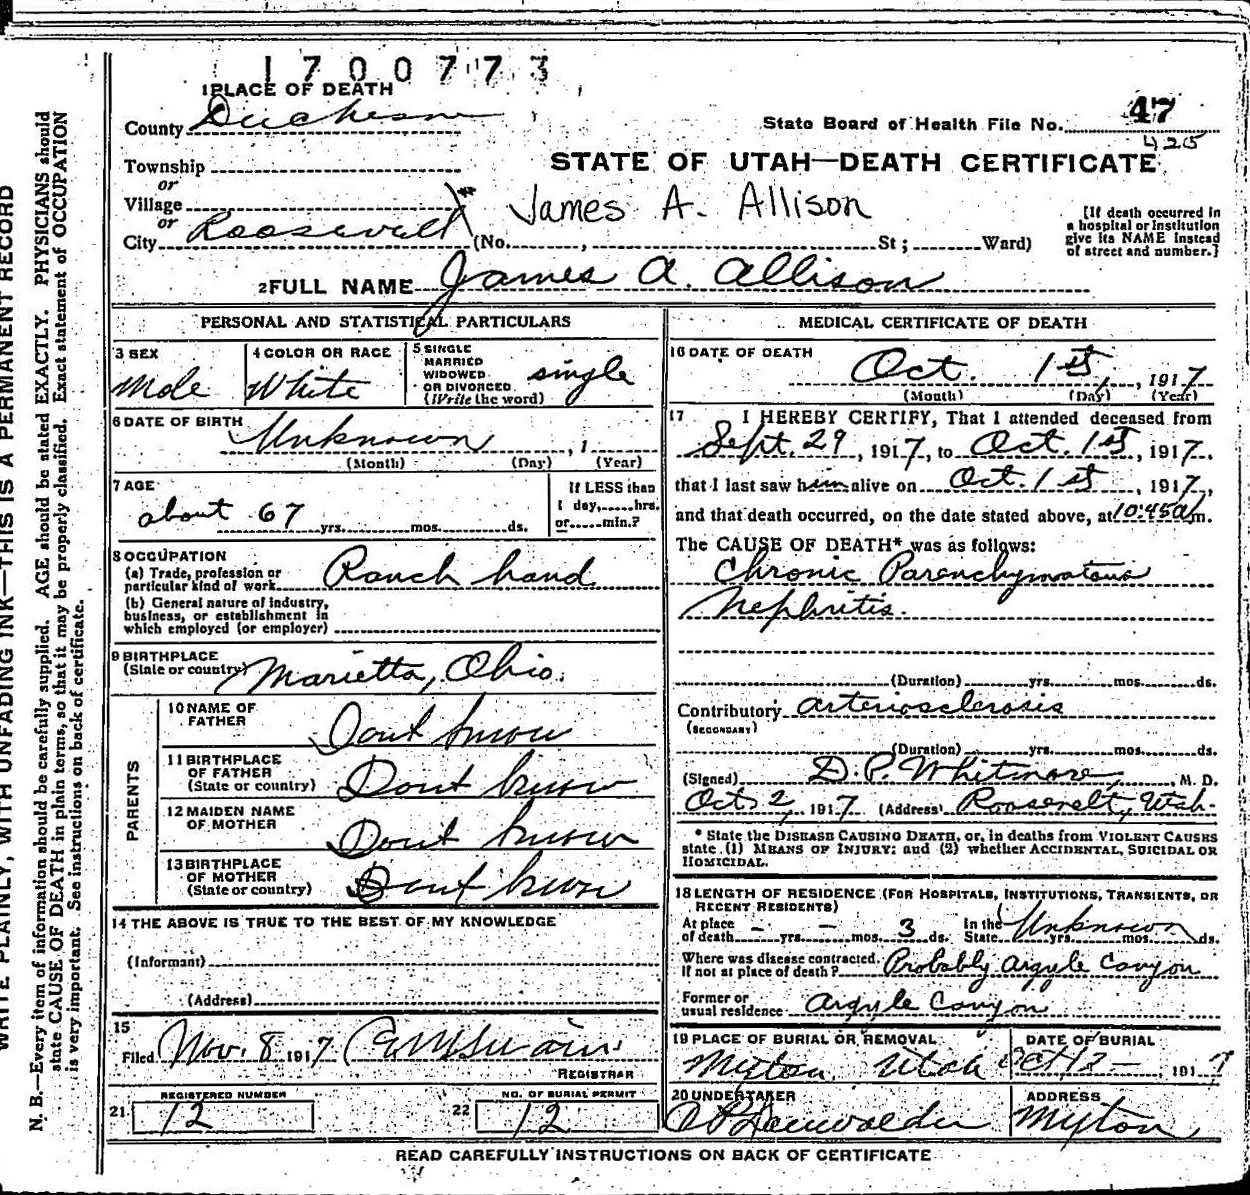 1700773
1 PLACE OF DEATH
County Duchesne
State Board of Health File No. 47
425
Township
or
STATE OF UTAH—DEATH CERTIFICATE
Village
or
James A. Allison
City Roosevelt (No. , St ; Ward)
[If death occurred in
a hospital or institution
give its NAME instead
of street and number.]
2 FULL NAME James A. Allison
PERSONAL AND STATISTICAL PARTICULARS
3 SEX
Male
4 COLOR OR RACE
White
5 SINGLE
MARRIED
WIDOWED
OR DIVORCED
(Write the word)
single
6 DATE OF BIRTH
Unknown , 1
(Month) (Day) (Year)
7 AGE
about 67 yrs. mos. ds.
If LESS than
1 day, hrs.
or min.?
8 OCCUPATION
(a) Trade, profession or
particular kind of work Ranch hand
(b) General nature of industry,
business, or establishment in
which employed (or employer)
9 BIRTHPLACE
(State or country) Marietta, Ohio.
PARENTS
10 NAME OF
FATHER
Dont know
11 BIRTHPLACE
OF FATHER
(State or country)
Dont know
12 MAIDEN NAME
OF MOTHER
Dont know
13 BIRTHPLACE
OF MOTHER
(State or country)
Dont know
14 THE ABOVE IS TRUE TO THE BEST OF MY KNOWLEDGE
(Informant)
(Address)
15
Filed Nov. 8 1917
REGISTRAR
21
REGISTERED NUMBER
12
22
NO. OF BURIAL PERMIT
12
MEDICAL CERTIFICATE OF DEATH
16 DATE OF DEATH
Oct. 1st, , 1917
(Month) (Day) (Year)
17 I HEREBY CERTIFY, That I attended deceased from
Sept. 29, 1917, to Oct. 1st, 1917.
that I last saw him alive on Oct. 1st, 1917,
and that death occurred, on the date stated above, at 10:45 am.
The CAUSE OF DEATH* was as follows:
Chronic Parenchymatous
Nephritis.
(Duration) yrs. mos. ds.
Contributory arteriosclerosis
(SECONDARY)
(Duration) yrs. mos. ds.
(Signed) D. P. Whitmore, M. D.
Oct 2, 1917 (Address) Roosevelt, Utah.
* State the DISEASE CAUSING DEATH, or, in deaths from VIOLENT CAUSES
state (1) MEANS OF INJURY; and (2) whether ACCIDENTAL, SUICIDAL OR
HOMICIDAL.
18 LENGTH OF RESIDENCE (FOR HOSPITALS, INSTITUTIONS, TRANSIENTS, OR
RECENT RESIDENTS)
At place
of death - yrs. - mos. 3 ds. In the
State Unknown yrs. mos. ds.
Where was disease contracted.
If not at place of death? Probably Argyle Canyon
Former or
usual residence Argyle Canyon
19 PLACE OF BURIAL OR REMOVAL
Myton, Utah
DATE OF BURIAL
Oct, 2 — , 1917
20 UNDERTAKER
ADDRESS
Myton
READ CAREFULLY INSTRUCTIONS ON BACK OF CERTIFICATE
WRITE PLAINLY, WITH UNFADING INK—THIS IS A PERMANENT RECORD
N. B.—Every item of information should be carefully supplied. AGE should be stated EXACTLY. PHYSICIANS should
state CAUSE OF DEATH in plain terms, so that it may be properly classified. Exact statement of OCCUPATION
is very important. See instructions on back of certificate.